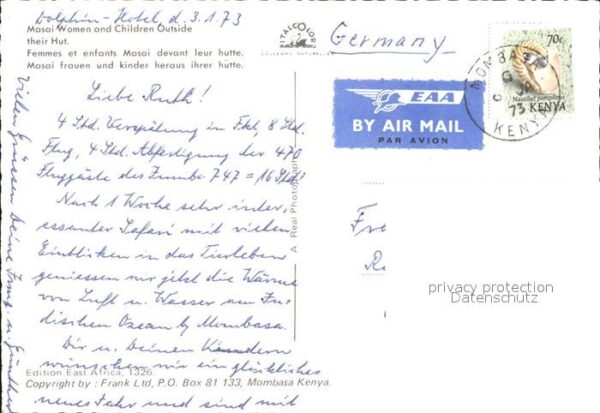 Dolphin-Hotel d. 3.1.73
Masai Women and Children Outside
their Hut.
Femmes et enfants Masai devant leur hutte.
Masai frauen und kinder heraus ihrer hütte.
Liebe Ruth!
4 Std. Verspätung in Fkf, 8 Std.
Flug, 4 Std. Abfertigung der 470
Fluggäste des Jumbo 747 = 16 Std!
Nach 1 Woche sehr inter-
essanter Safari mit vielen
Einblicken in das Tierleben
geniessen wir jetzt die Wärme
von Luft u. Wasser am In-
dischen Ozean b/ Mombasa.
Dir u. Deinen Kindern
wünschen wir ein glückliches
neues Jahr und sind mit
vielen Grüssen Deine Irmg. u. Günther
Edition East Africa, 1326.
Copyright by : Frank Ltd, P.O. Box 81 133, Mombasa Kenya.
A Real Photograph
ITALCOLOR
Germany
EAA
BY AIR MAIL
PAR AVION
70c
Nautilus pompilius
KENYA
MOMBASA
73
KENYA
Fr
R
privacy protection
Datenschutz